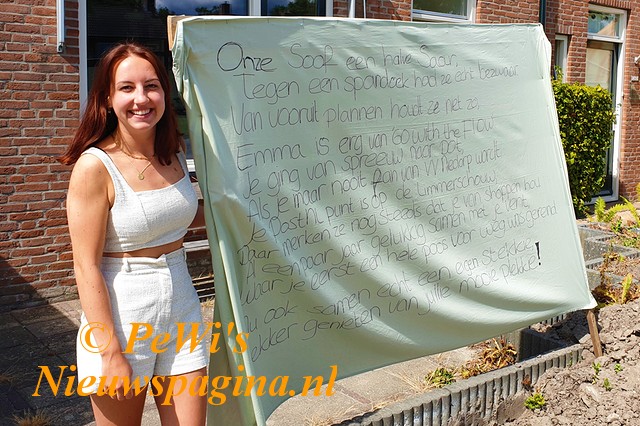 Onze Soof een halve Spaar,
Tegen een spandoek had ze echt bezwaar.
Van vooruit plannen houdt ze net zo,
Emma is erg van 'Go with the Flow'
Je ging van spreeuw naar
Als je maar nooit van
Je bast nu punt is op de Limmerschouw
Daar merken ze nog steeds dat je van shoppen hou
Al een paar jaar gelukkig samen met je vent
Waar je eerst een hele poos voor weg was gerend
Nu ook samen echt een eigen stekkie
lekker genieten van jullie mooie plekkie!
© PeWi's
Nieuwspagina.nl